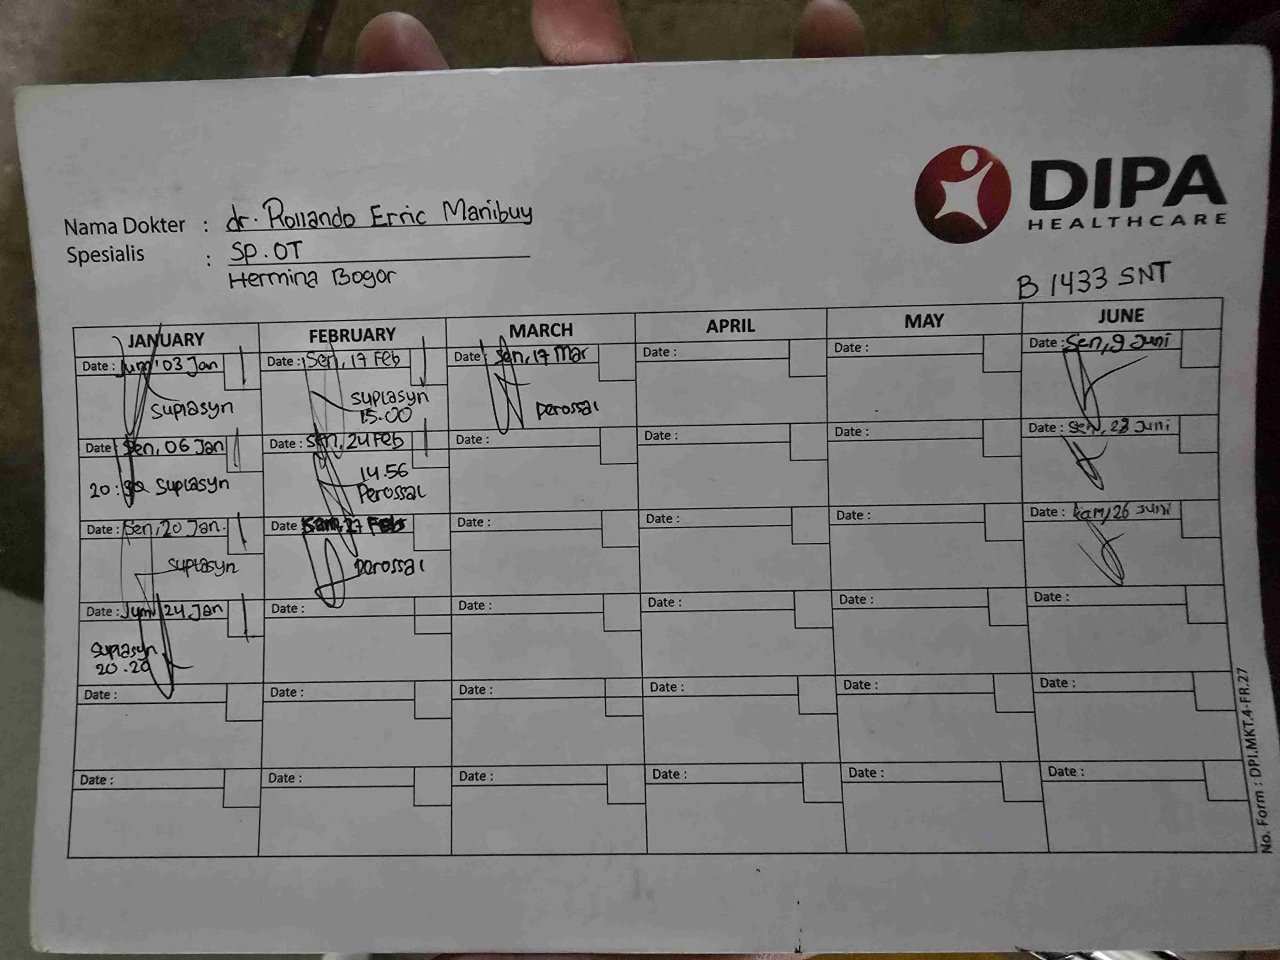 DIPA
HEALTHCARE
Nama Dokter : dr. Rollando Erric Manibuy
Spesialis : SP.OT
Hermina Bogor
B 1433 SNT
JANUARY FEBRUARY MARCH APRIL MAY JUNE
Date : Jum' 03 Jan Date : Sen, 17 Feb Date : Sen, 17 Mar Date : Date : Date : Sen, 9 Juni
Suplasyn Suplasyn Perossal
15.00
Date : Sen, 06 Jan Date : Sen, 24 Feb Date : Date : Date : Date : Sen, 23 Juni
20: Suplasyn 14.56
Perossal
Date : Sen, 20 Jan. Date : Feb Date : Date : Date : Date : Kam, 26 Juni
Suplasyn Perossal
Date : Jum, 24 Jan Date : Date : Date : Date : Date :
Suplasyn
20.20
Date : Date : Date : Date : Date : Date :
Date : Date : Date : Date : Date : Date :
No. Form : DPI.MKT.4-FR.27